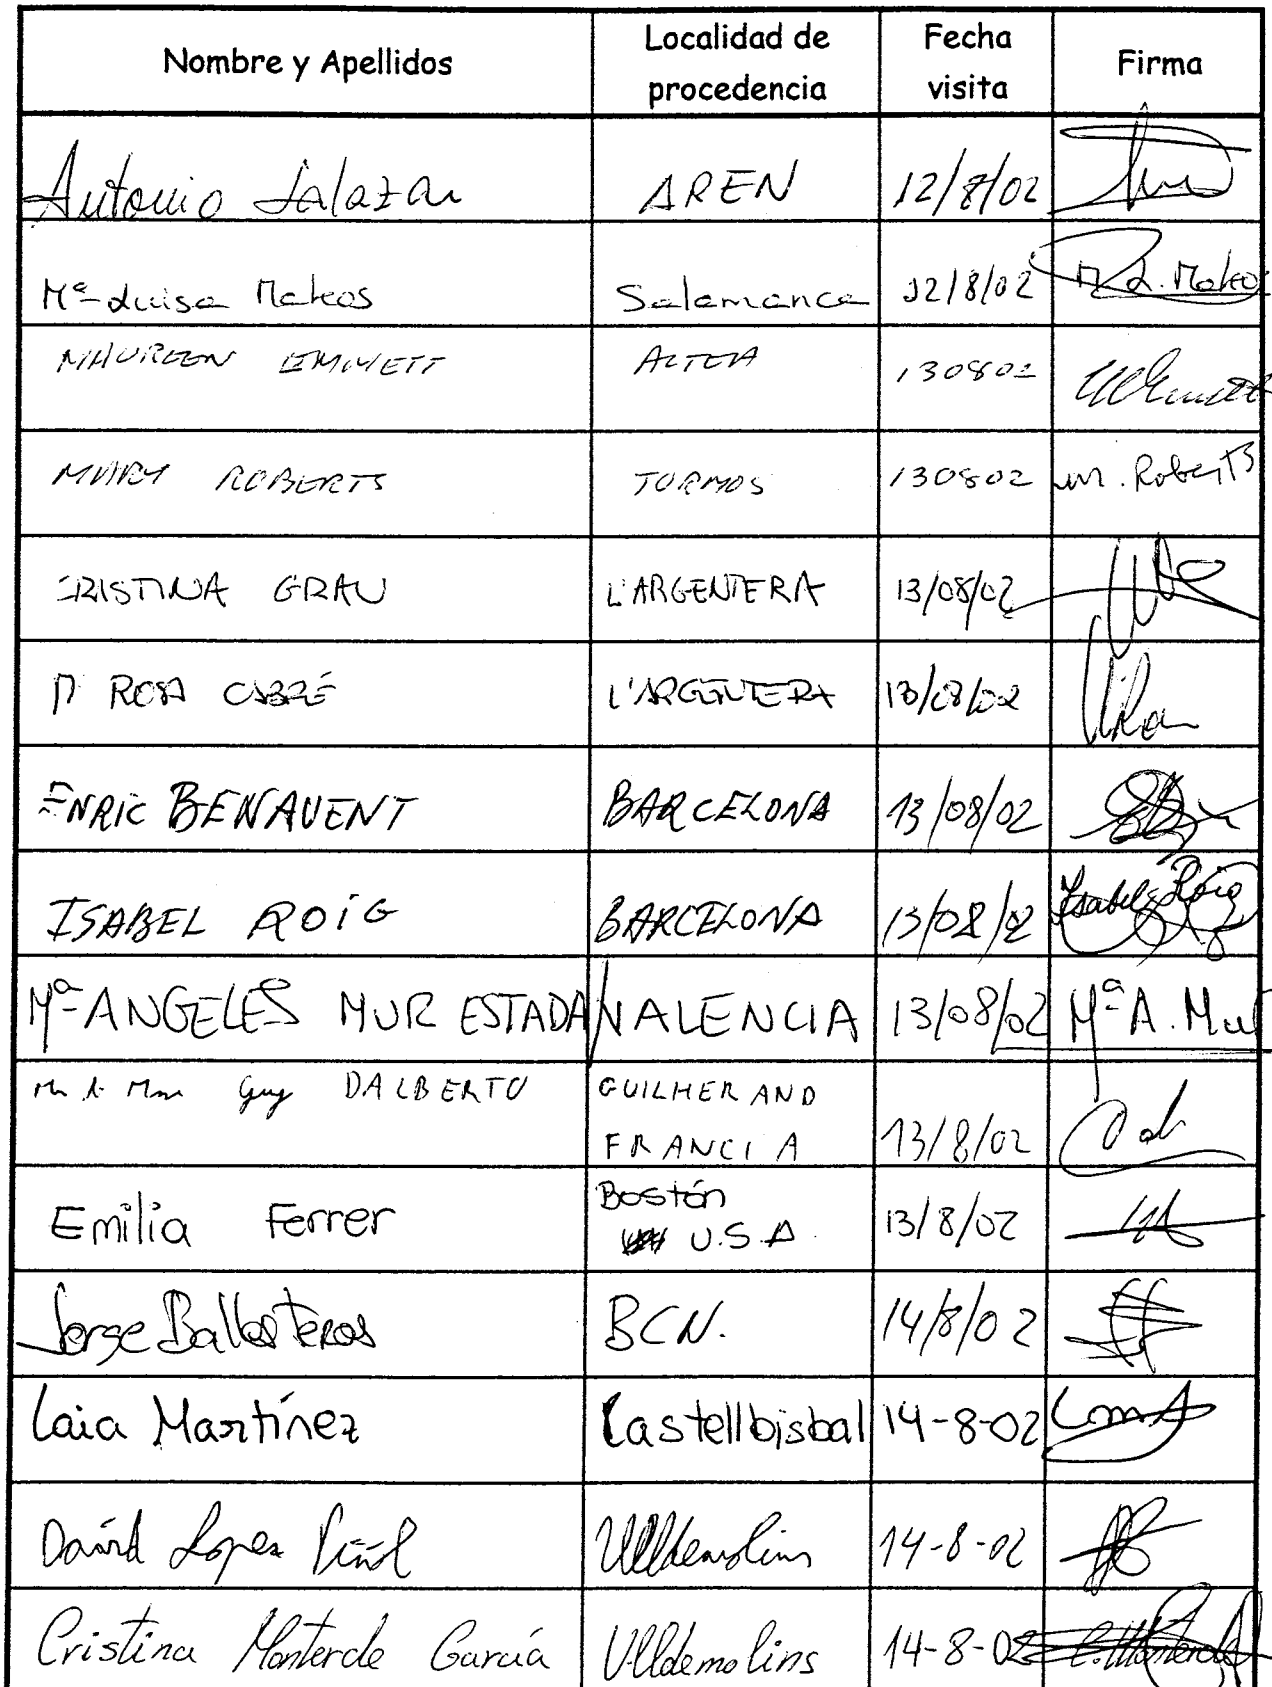 Nombre y Apellidos Localidad de procedencia Fecha visita Firma
Antonio Salazar AREN 12/8/02
Mª Luisa Mateos Salamanca 12/8/02 M L. Mateos
MAUREEN EMMETT ALTEA 130802
MARY ROBERTS TORMOS 130802 M. Roberts
CRISTINA GRAU L'ARGENTERA 13/08/02
M ROSA CABRÉ L'ARGENTERA 13/08/02
ENRIC BENAVENT BARCELONA 13/08/02
ISABEL ROIG BARCELONA 13/08/02 Isabel Roig
Mª ANGELES MUR ESTADA VALENCIA 13/08/02 Mª A. Mur
Guy DALBERTO GUILHERAND
FRANCIA 13/8/02
Emilia Ferrer Bostón
U.S.A 13/8/02
Jorge Ballesteros BCN. 14/8/02
Laia Martínez Castellbisbal 14-8-02
David Lopez Piñol Ulldemolins 14-8-02
Cristina Monterde García Ulldemolins 14-8-02 C. Monterde